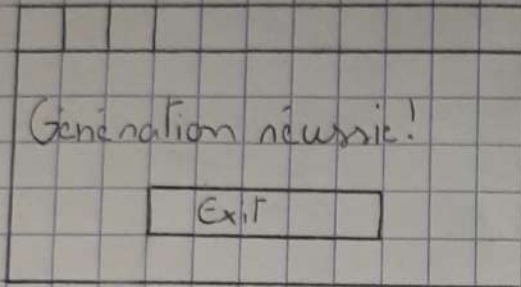 Génération réussie!
Exit